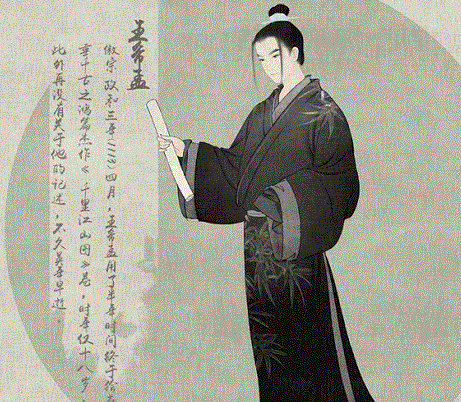 王希孟
徽宗政和三年(1113)四月,王希孟用了半年时间终于绘
事千古之鸿篇杰作《千里江山图》卷,时年仅十八岁,
此外再没有关于他的记述,不久英年早逝。